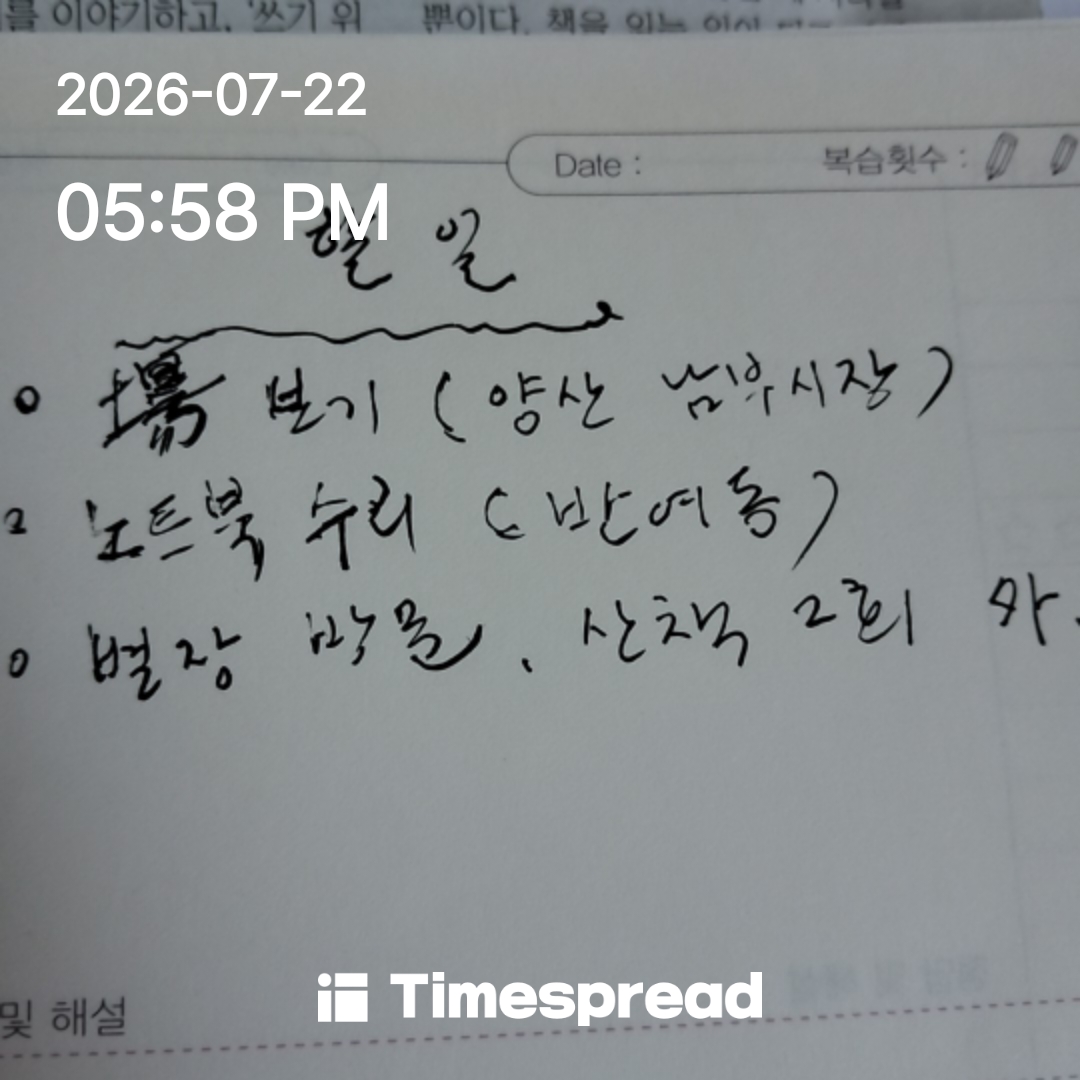 를 이야기하고, '쓰기 위
뿐이다. 책을 읽는
2026-07-22
Date : 복습횟수 :
05:58 PM
할 일
o 場 보기 (양산 남부시장)
2 노트북 수리 (반여동)
o 별장 박물. 산책 2회
Timespread
및 해설